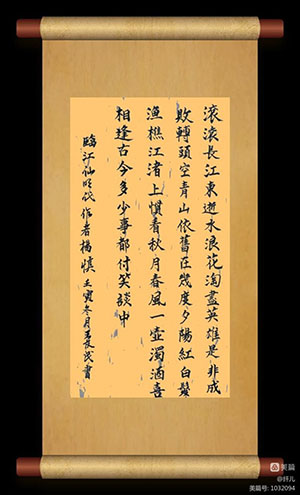 滚滚長江東逝水浪花淘盡英雄是非成
敗轉頭空青山依舊在幾度夕陽紅白髮
漁樵江渚上慣看秋月春風一壺濁酒喜
相逢古今多少事都付笑談中
臨江仙明代作者楊慎壬寅冬月民書
美篇
@纤儿
美篇号: 1032094